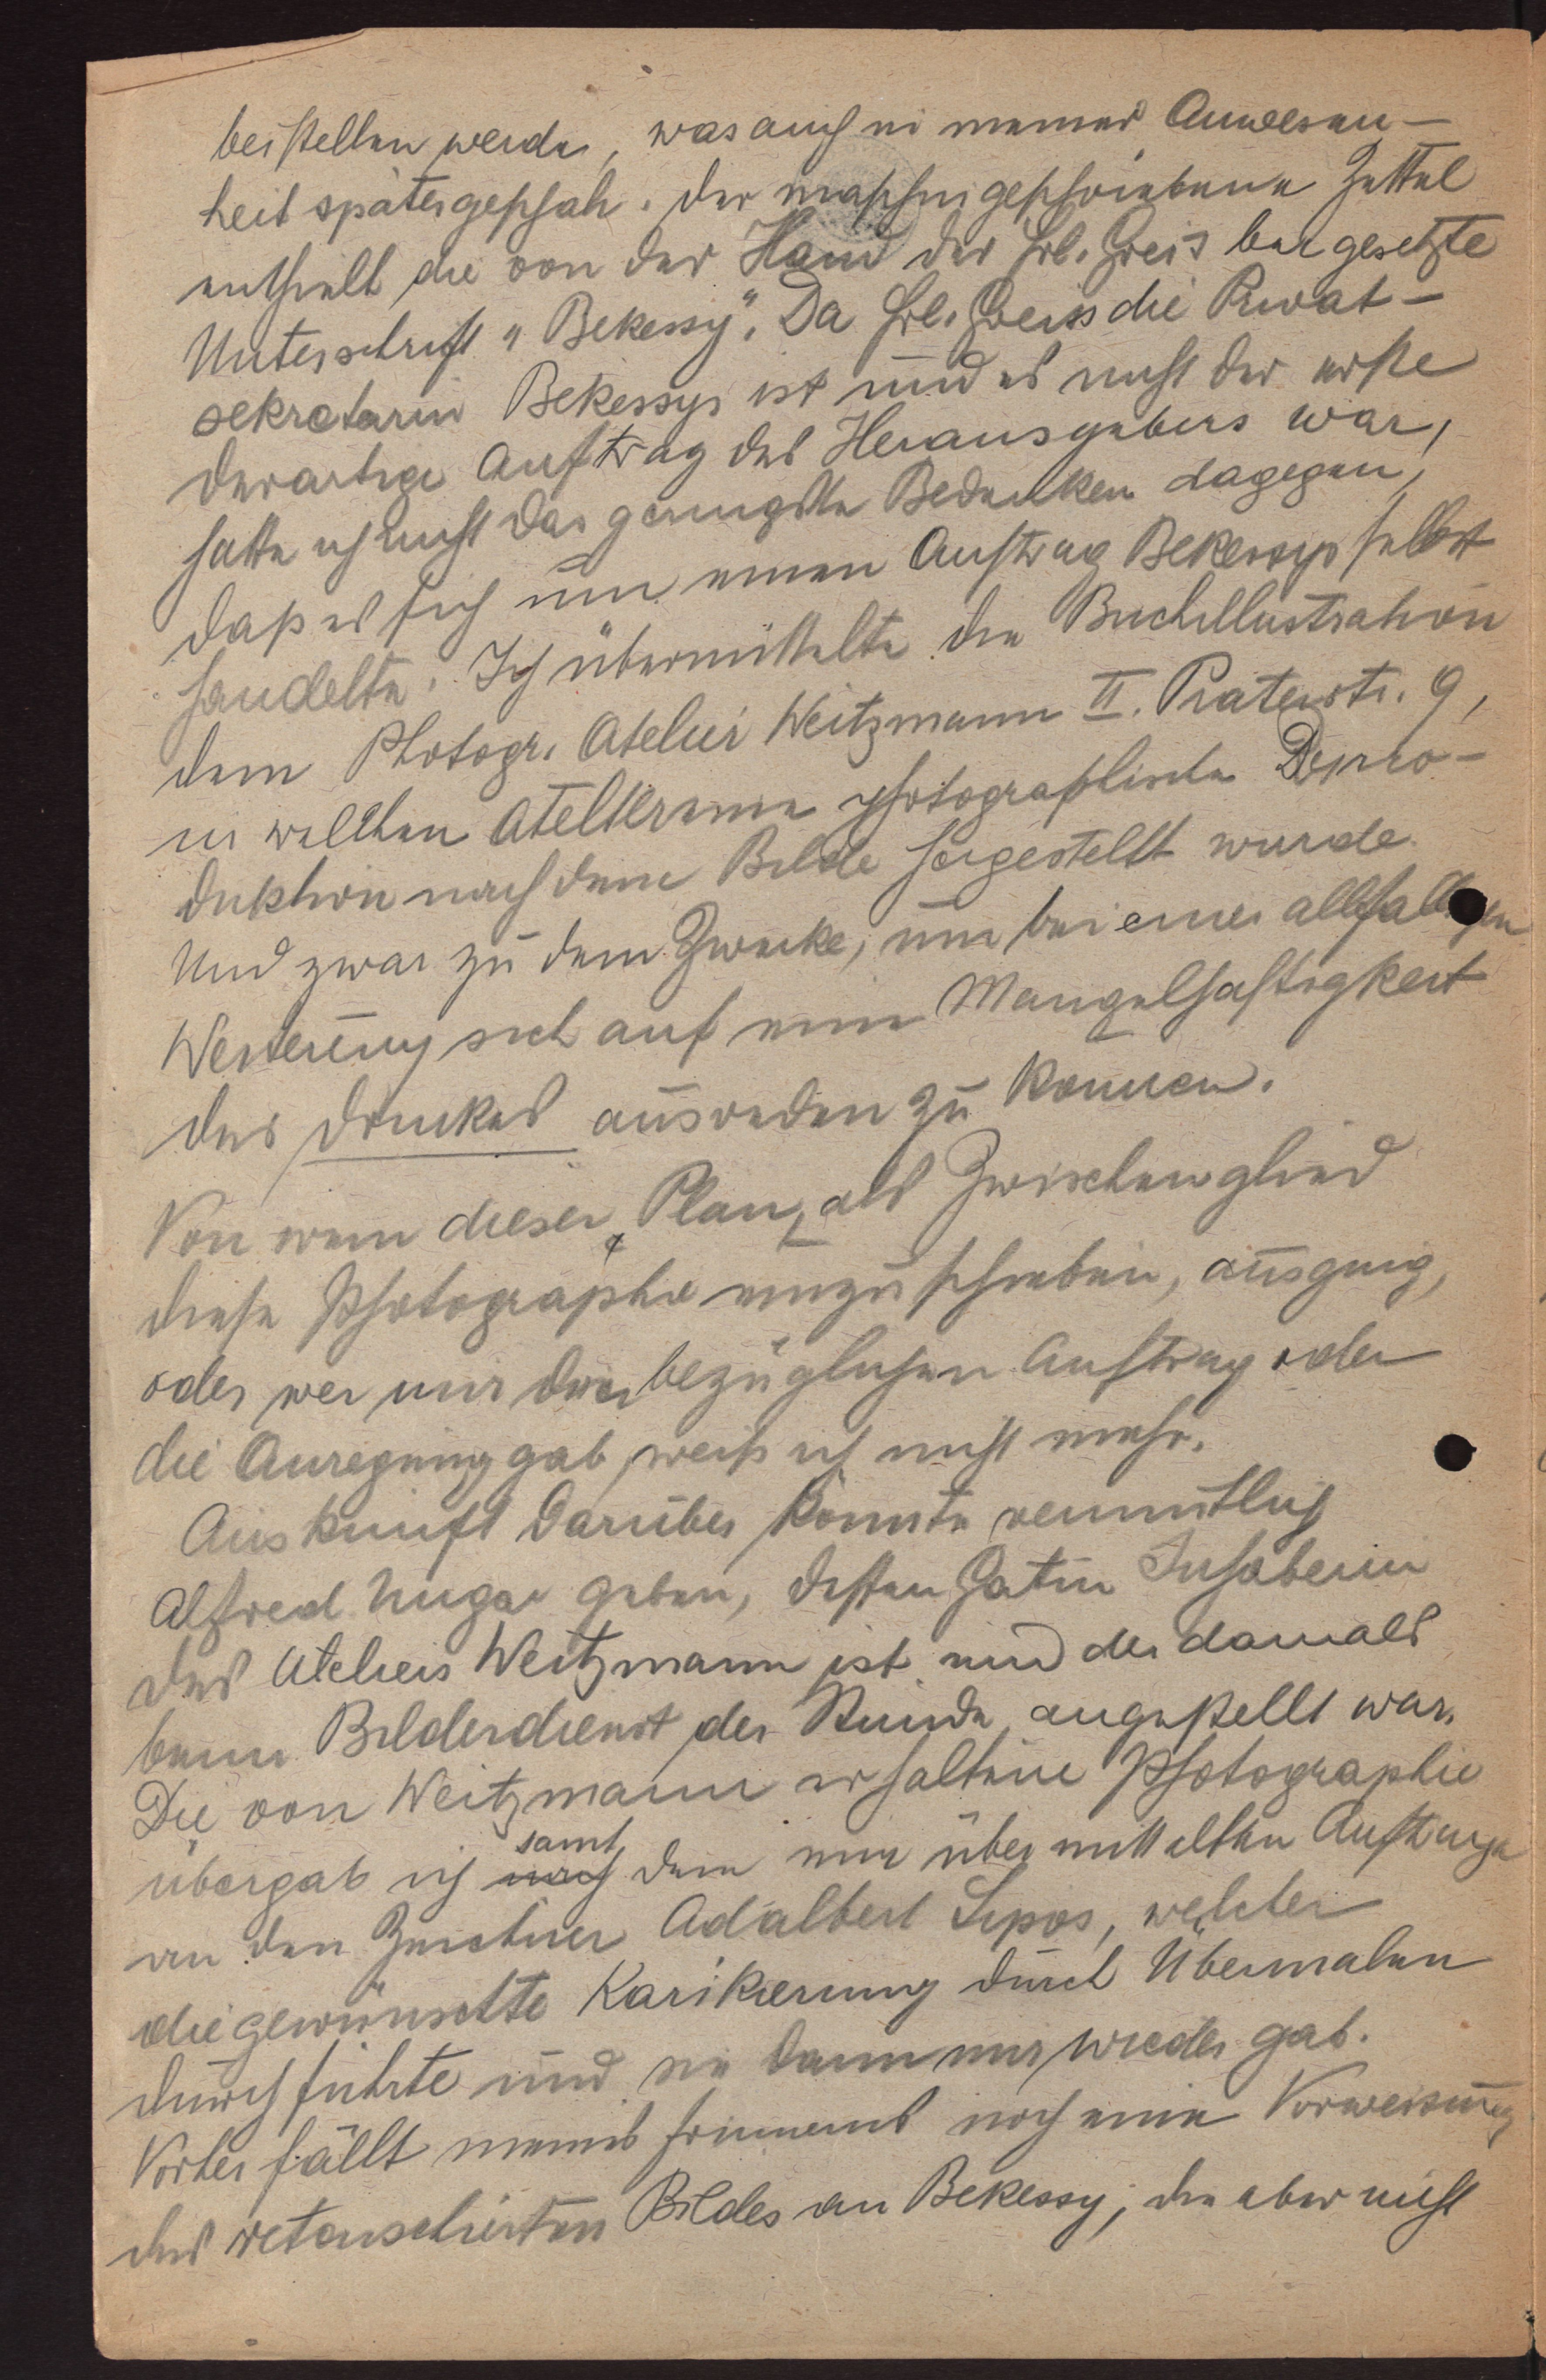 beistellen werde, was auch in meiner Anwesen-
heit später geschah. Der maschingeschriebene Zettel
enthielt die von der Hand der Frl. Greis beigesetzte
Unterschrift „Bekessy". Da Frl. Greiss die Privat-
sekretärin Bekessys ist und es nicht der erste
derartige Auftrag des Herausgebers war,
hatte ich nicht das geringste Bedenken dagegen,
daß es sich um einen Auftrag Bekessys selbst
handelte. Ich übermittelte die Buchillustration
dem Photogr. Atelier Weitzmann II. Praterstr. 9,
in welchem Atelier eine photographische Repro-
duktion nach dem Bilde hergestellt wurde.
Und zwar zu dem Zwecke, um bei einer allfälligen
Weiterung sich auf eine Mangelhaftigkeit
des Druckes ausreden zu können.
Von wem dieser Plan, als Zwischenglied
diese Photographie einzuschieben, ausging,
oder wer mir den bezüglichen Auftrag oder
die Anregung gab, weiß ich nicht mehr.
Auskunft darüber könnte vermutlich
Alfred Ungar geben, dessen Gattin Inhaberin
des Ateliers Weitzmann ist und der damals
beim Bilderdienst der Stunde angestellt war.
Die von Weitzmann erhaltene Photographie
übergab ich samt dem mir übermittelten Auftrage
an den Zeichner Adalbert Sipos, welcher
die gewünschte Karikierung durch Übermalen
durchführte und sie dann mir wieder gab.
Vorher fällt meines Erinnerns noch eine Vorweisung
des retouschierten Bildes an Bekessy, die aber nicht